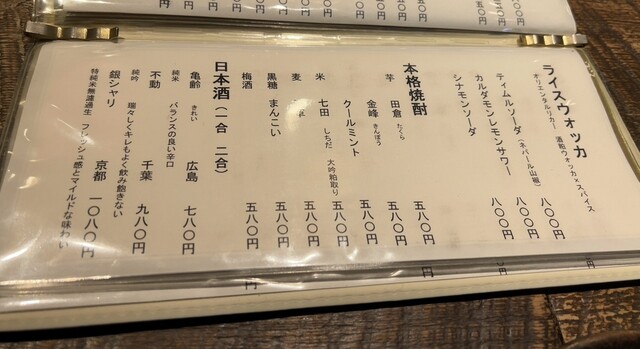 ライスウォッカ
オリエンタルリカー 酒粕ウォッカ×スパイス
ティムルソーダ(ネパール山椒) 八〇〇円
カルダモンレモンサワー 八〇〇円
シナモンソーダ 八〇〇円
本格焼酎
芋 田倉 たくら 五八〇円
金峰 きんぽう 五八〇円
クールミント 五八〇円
米 七田 しちだ 大吟粕取り 五八〇円
麦 五八〇円
黒糖 まんこい 五八〇円
梅酒 五八〇円
日本酒(一合 二合)
亀齢 きれい 広島 七八〇円
純米 バランスの良い辛口
不動 千葉 九八〇円
純吟 瑞々しくキレもよく飲み飽きない
銀シャリ 京都 一〇八〇円
特純米無濾過生 フレッシュ感とマイルドな味わい